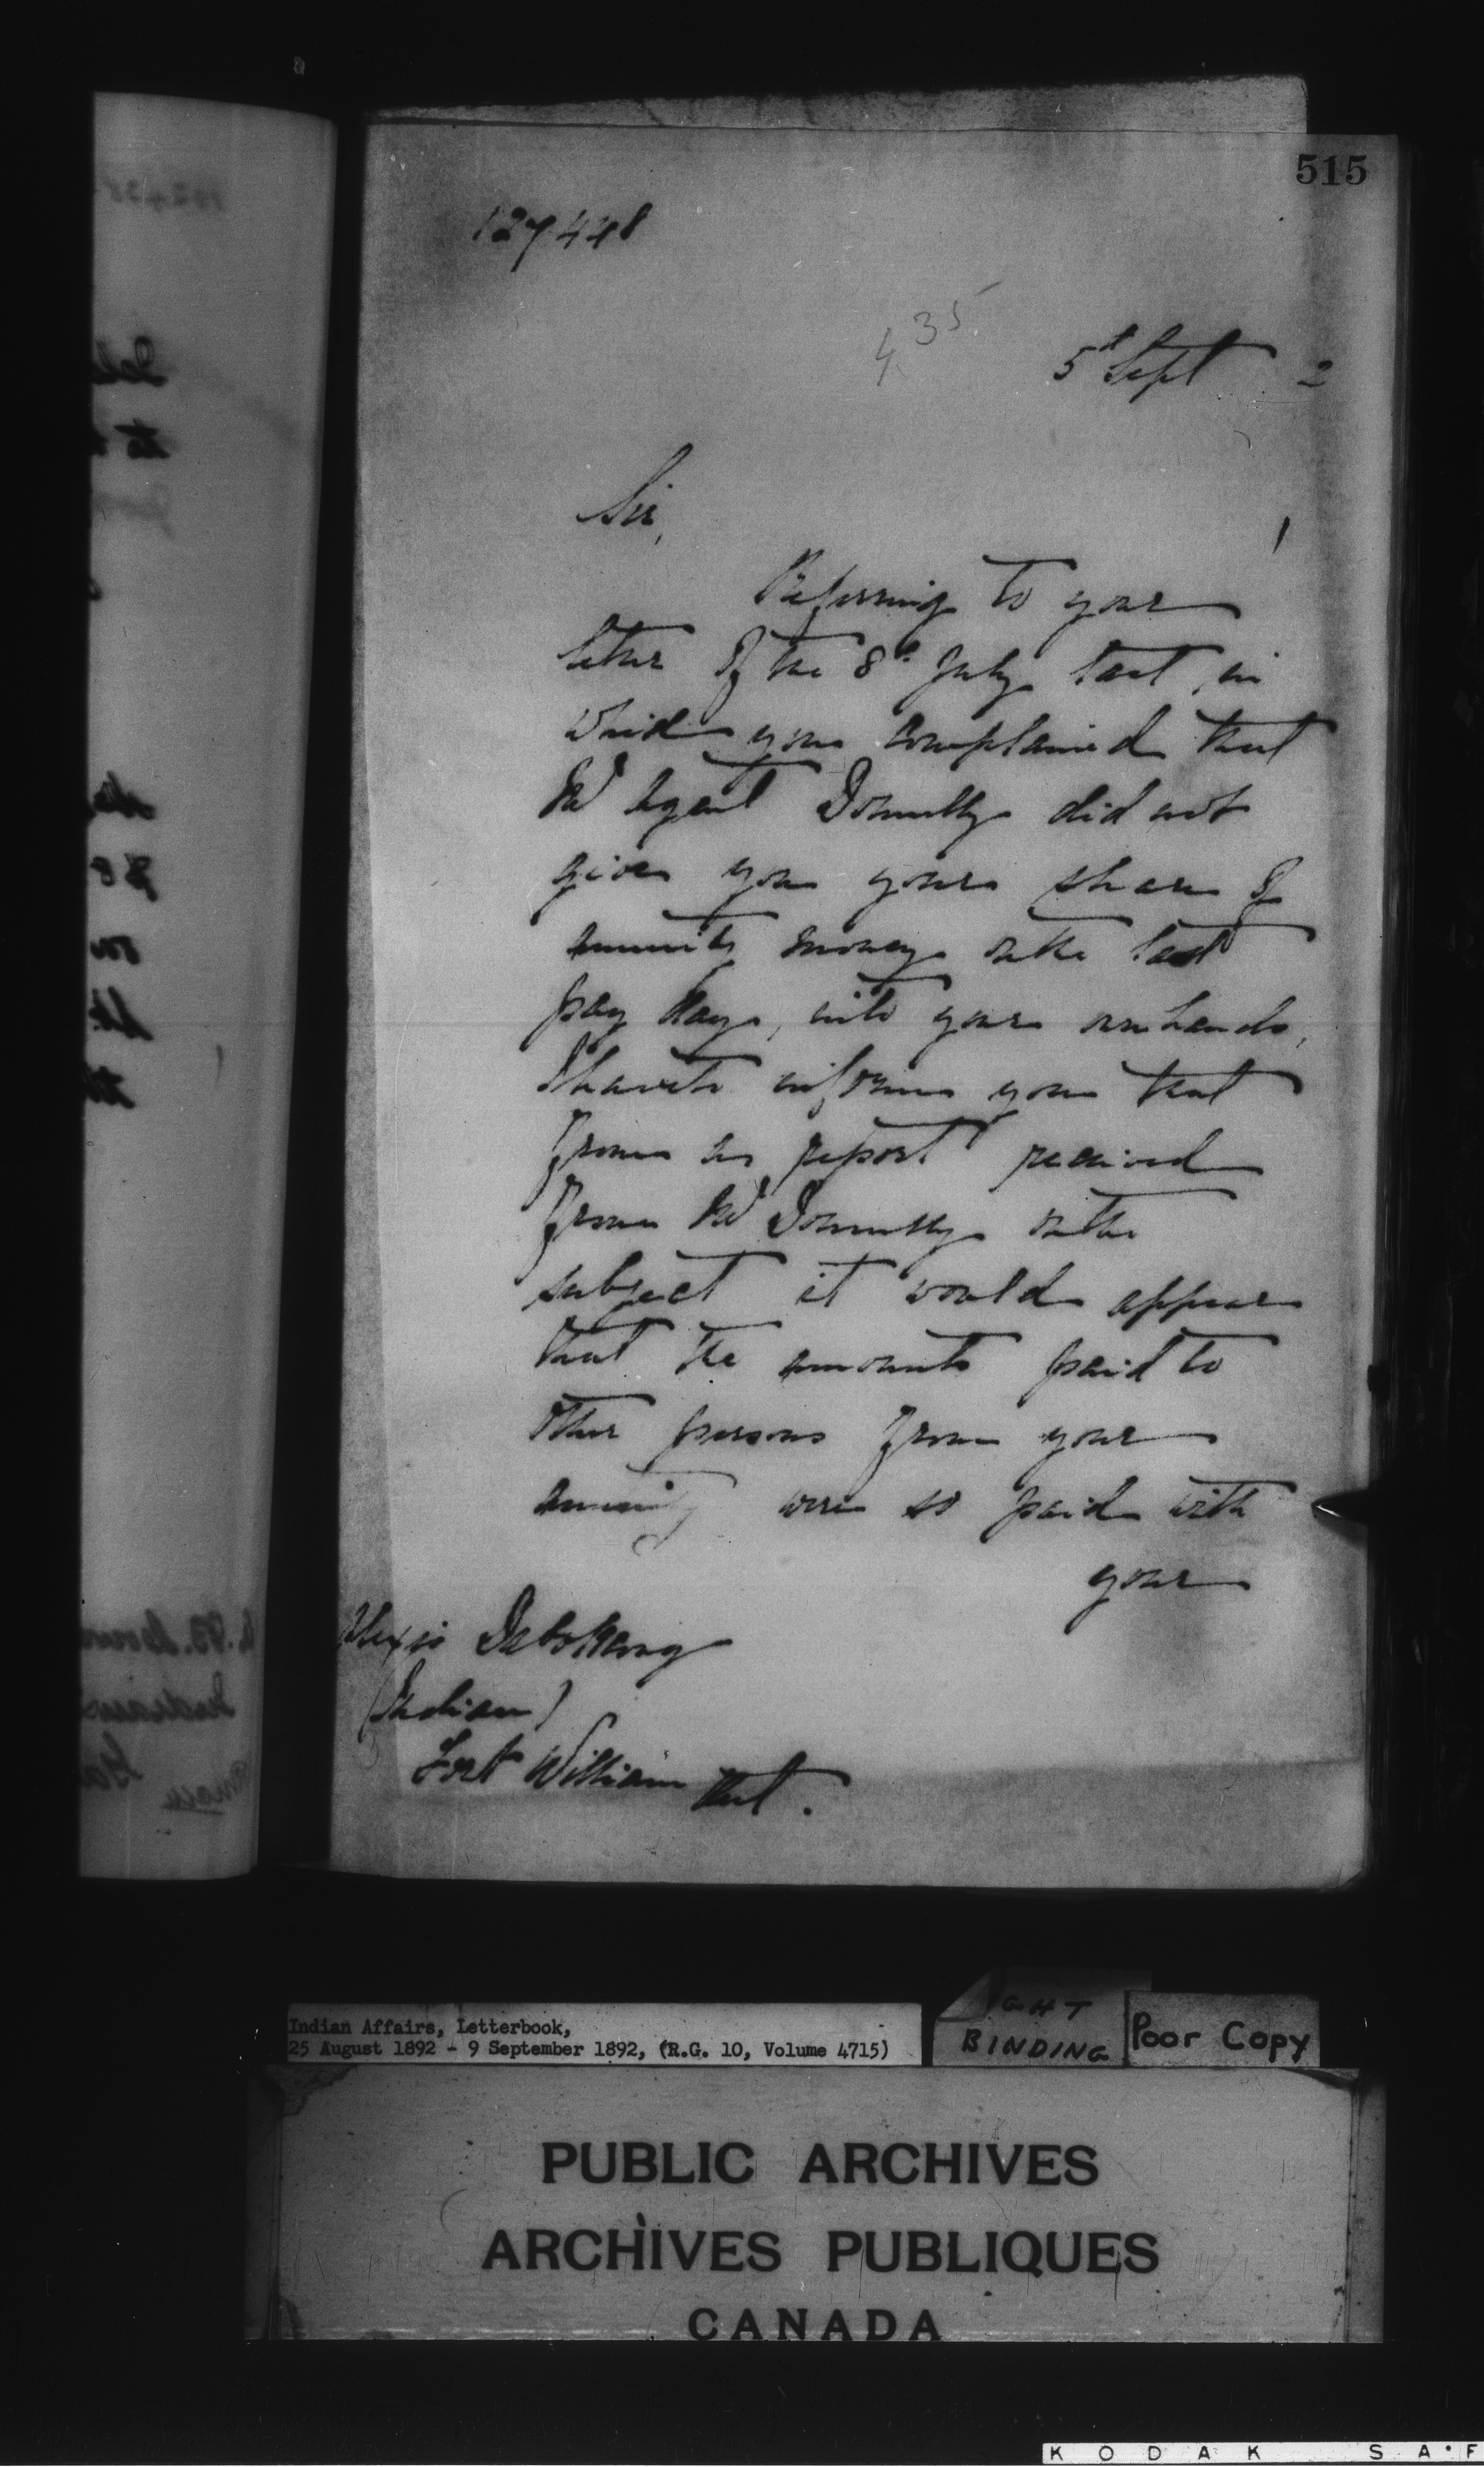 515
127448
435
5th Sept 2
Sir,
Referring to your
letter of the 8th July last, in
which you complained that
Mr Agent Donnelly did not
give you your share of
annuity money on the last
pay day, into your own hands,
I have to inform you that
from a report received
from Mr Donnelly on the
subject it would appear
that the amounts paid to
other persons from your
annuity were so paid with
your
Alexis
(Indian)
Fort William Ont.
Indian Affairs, Letterbook,
25 August 1892 - 9 September 1892, (R.G. 10, Volume 4715)
GHT
BINDING
Poor Copy
PUBLIC ARCHIVES
ARCHIVES PUBLIQUES
CANADA
KODAK SA·F